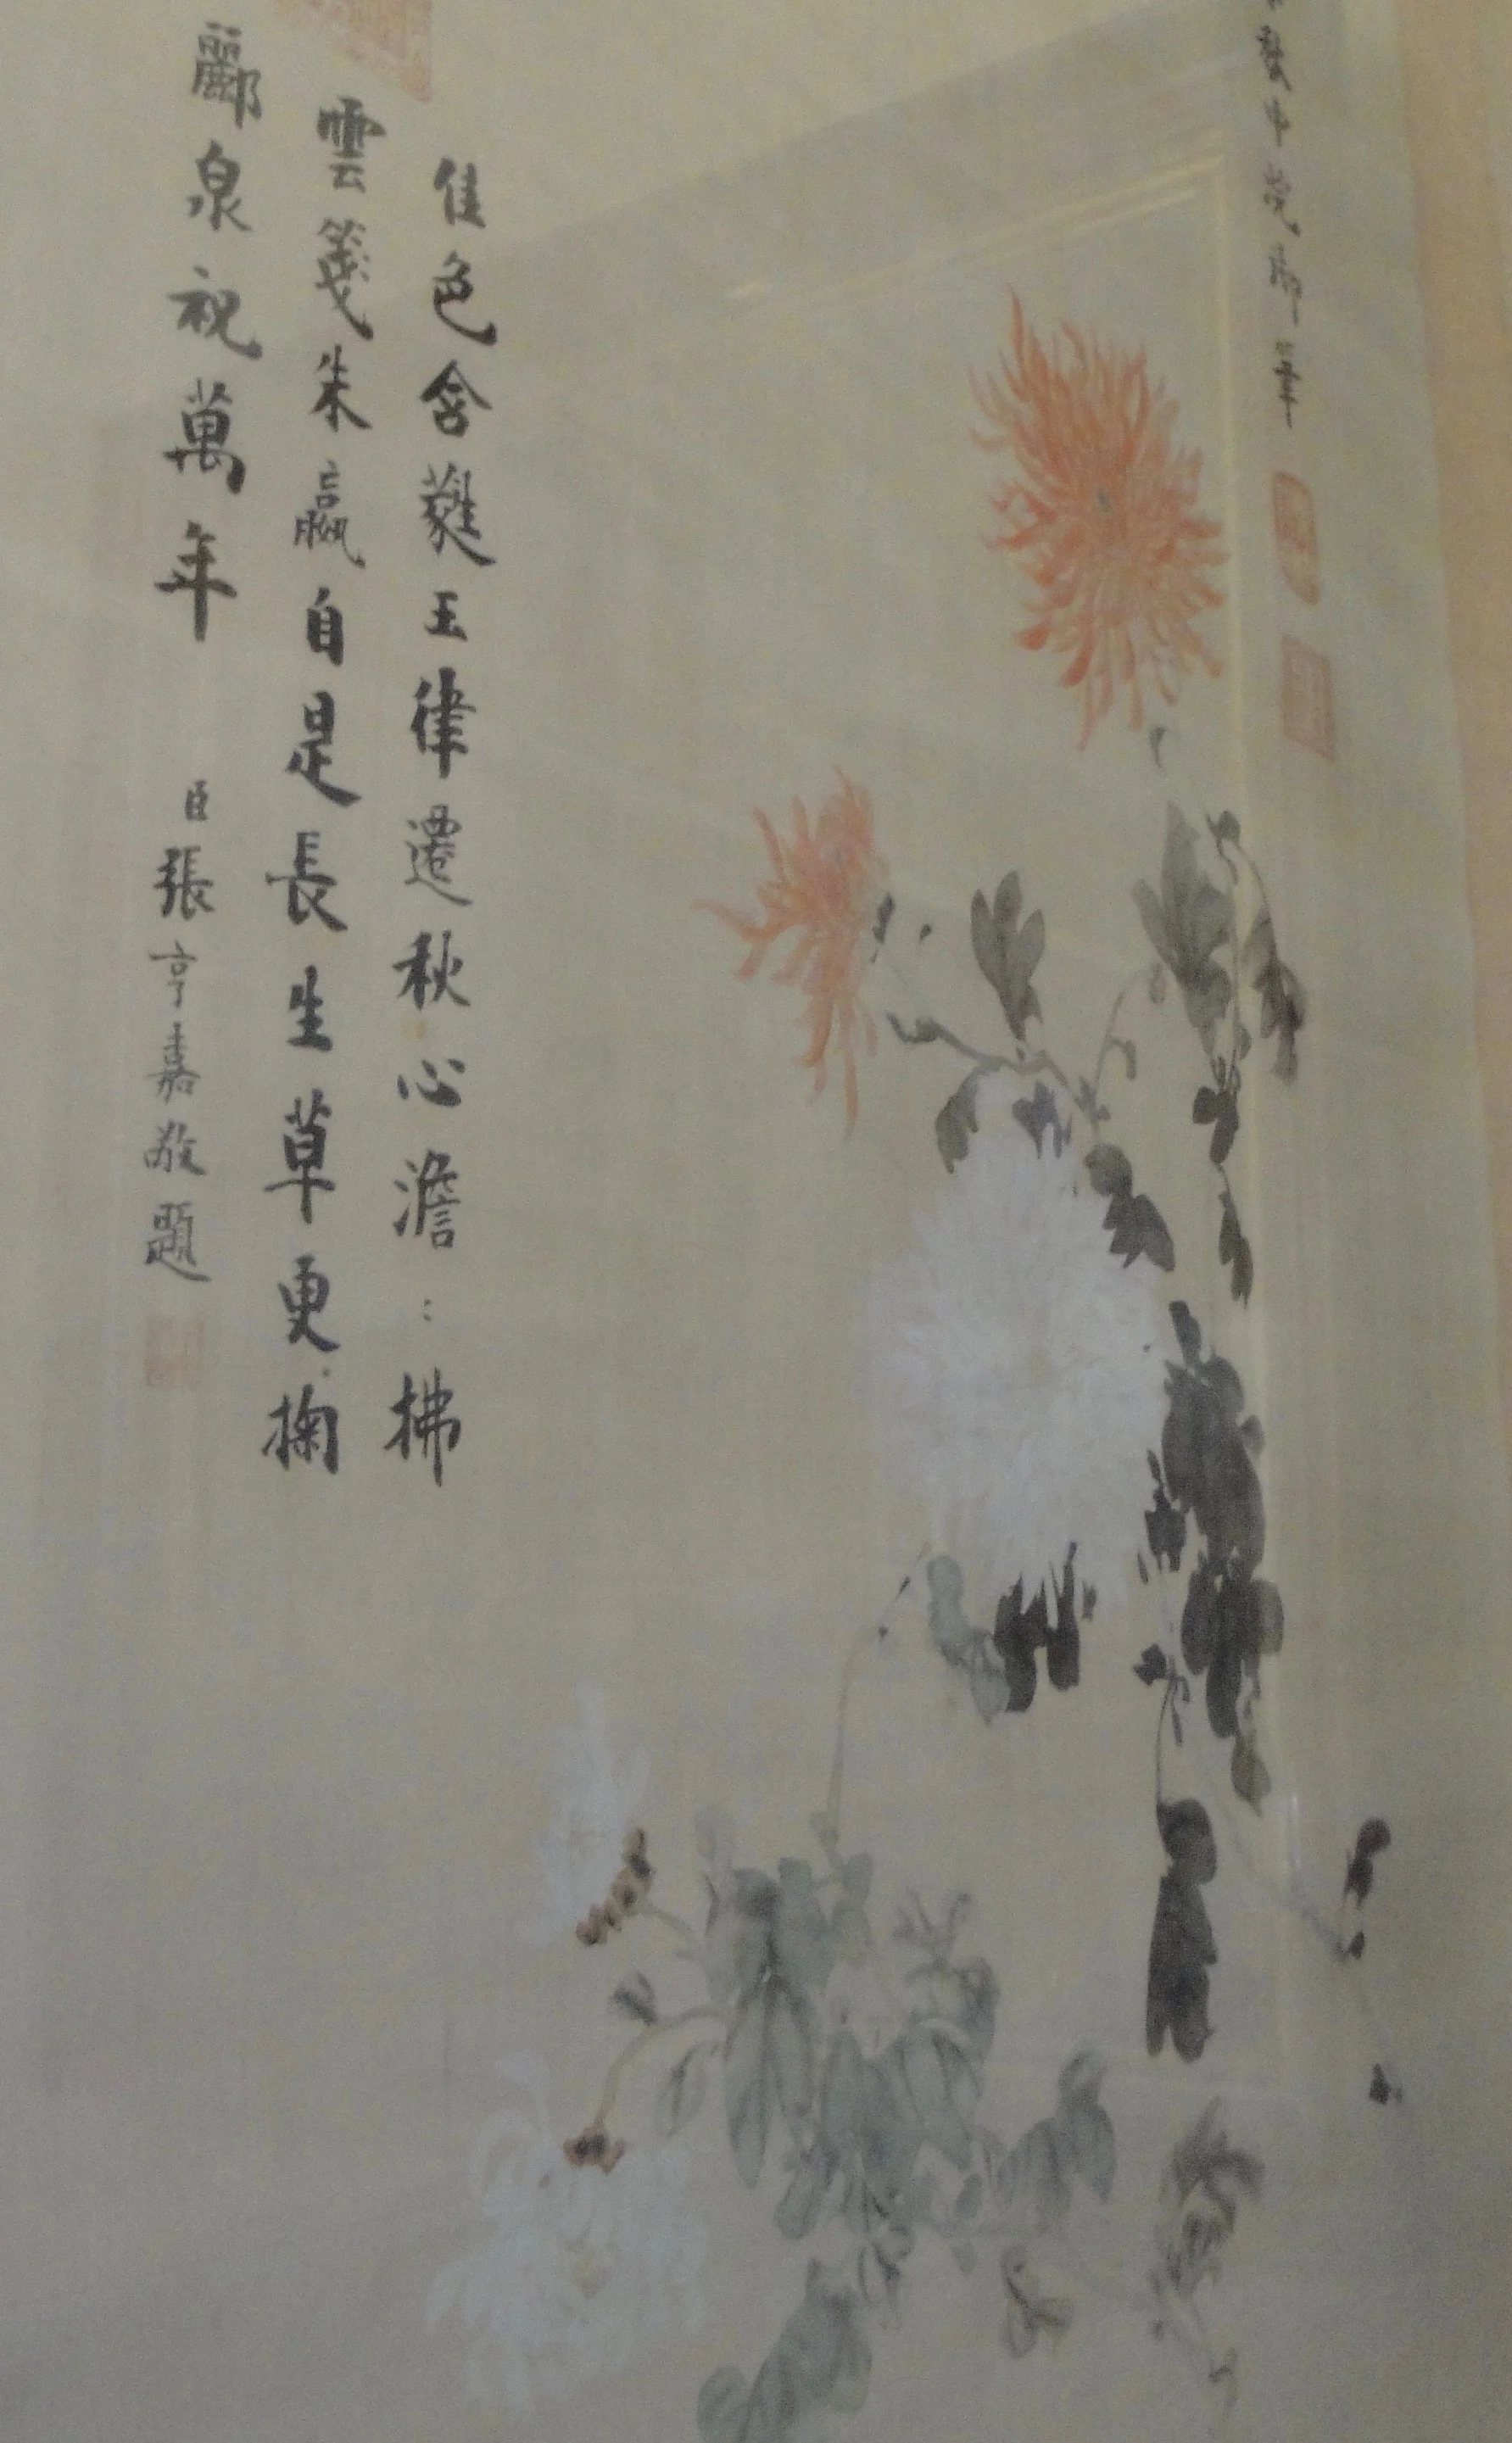 癸卯 御筆
佳色含蕤玉律遷秋心澹:拂
雲箋朱羸自是長生草更掬
酈泉祝萬年 臣張亨嘉敬題